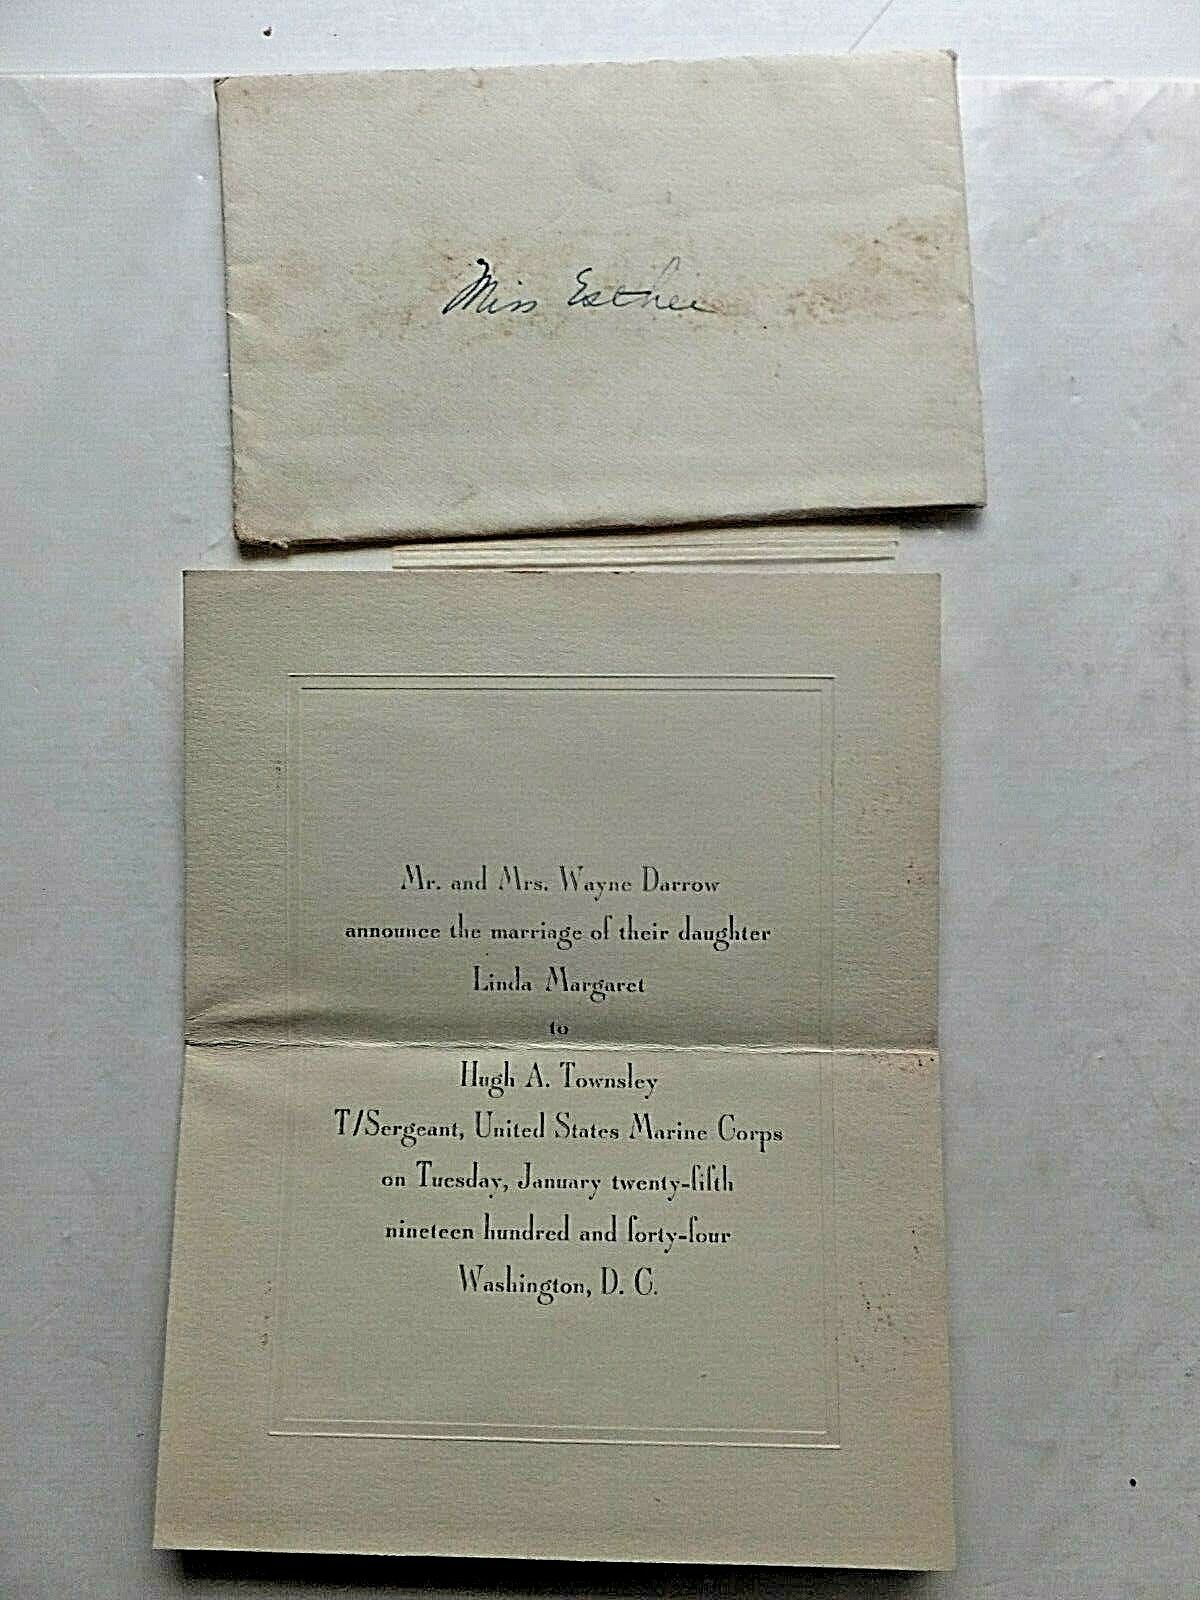 Miss Esther
Mr. and Mrs. Wayne Darrow
announce the marriage of their daughter
Linda Margaret
to
Hugh A. Townsley
T/Sergeant, United States Marine Corps
on Tuesday, January twenty-fifth
nineteen hundred and forty-four
Washington, D. C.